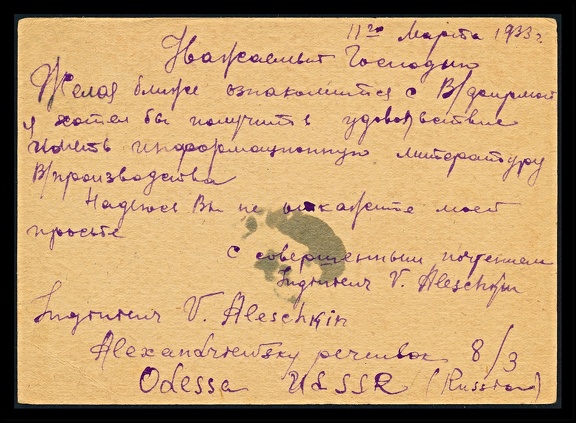 11го Марта 1933 г.
Уважаемый Господин
Желая ближе ознакомиться с В/фирмой
я хотел бы получить удовольствие
иметь информационную литературу
В/производства
Надеюсь Вы не откажите моей
просьбе
С совершенным почтением
V. Aleschkin
V. Aleschkin
8/3
Odessa USSR (Russland)